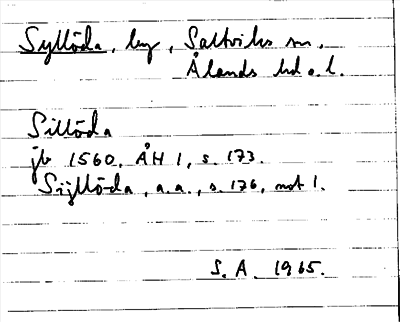 Syllöda, by, Saltviks sn,
Ålands hd o. l.
Sillöda
jb 1560, ÅH 1, s. 173.
Sijllöda, a.a., s. 176, not 1.
S. A. 1965.